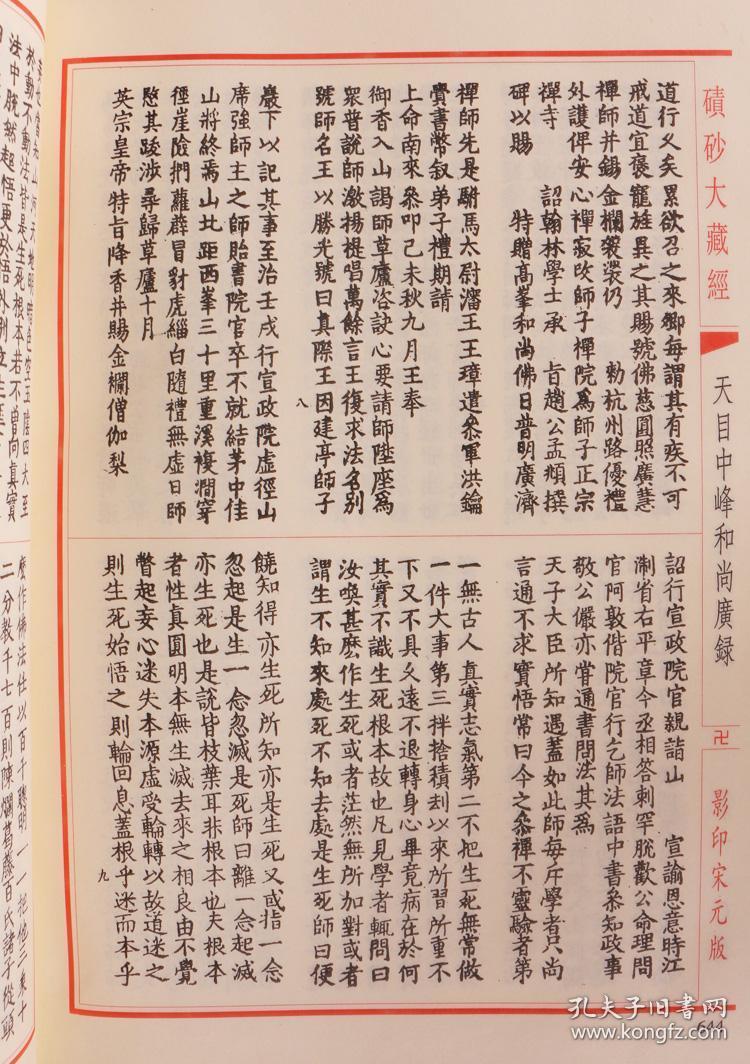 磧砂大藏經
天目中峰和尚廣録
卍
影印宋元版
道行乆矣累欲召之來鄉每謂其有疾不可
戒道宜褒寵旌異之其賜號佛慈圓照廣慧
禪師并錫金襴袈裟仍　勑杭州路優禮
外護俾安心禪寂改師子禪院爲師子正宗
禪寺　詔翰林學士承　旨趙公孟頫撰
碑以賜　特贈高峯和尚佛日普明廣濟
禪師先是駙馬太尉瀋王王璋遣叅軍洪鑰
賫書幣叙弟子禮期請
上命南來叅叩己未秋九月王奉
御香入山謁師草廬咨訣心要請師陞座爲
衆普說師激揚提唱萬餘言王復求法名別
號師名王以勝光號曰真際王因建亭師子
八
巖下以記其事至治壬戌行宣政院虛徑山
席強師主之師貽書院官卒不就結茅中佳
山將終焉山北距西峯三十里重溪複澗穿
徑崖險捫蘿薜冒豺虎緇白隨禮無虛日師
愍其跋涉尋歸草廬十月
英宗皇帝特旨降香并賜金襴僧伽梨
詔行宣政院官親詣山　宣諭恩意時江
淛省右平章今丞相答剌罕脫歡公命理問
官阿敦偕院官行乞師法語中書叅知政事
敬公儼亦甞通書問法其爲
天子大臣所知遇蓋如此師每斥學者只尚
言通不求實悟常曰今之叅禪不靈驗者第
一無古人真實志氣第二不把生死無常做
一件大事第三拌捨積刦以來所習所重不
下又不具乆遠不退轉身心畢竟病在於何
其實不識生死根本故也凡見學者輒問曰
汝喚甚麽作生死或者茫然無所加對或者
謂生不知來處死不知去處是生死師曰便
饒知得亦生死所知亦是生死又或指一念
忽起是生一念忽滅是死師曰離一念起滅
亦生死也是說皆枝葉耳非根本也夫根本
者性真圓明本無生滅去來之相良由不覺
瞥起妄心迷失本源虛受輪轉以故道迷之
則生死始悟之則輪回息蓋根乎迷而本乎
九
於動不動法皆是生死根本若不曾向真實
法中脫然超悟更於悟外別立生
麽作佛法仕以百千聰明一一把他三乘十
二分教千七百則陳爛葛藤百氏諸子從頭
644
孔夫子旧书网
www.kongfz.com